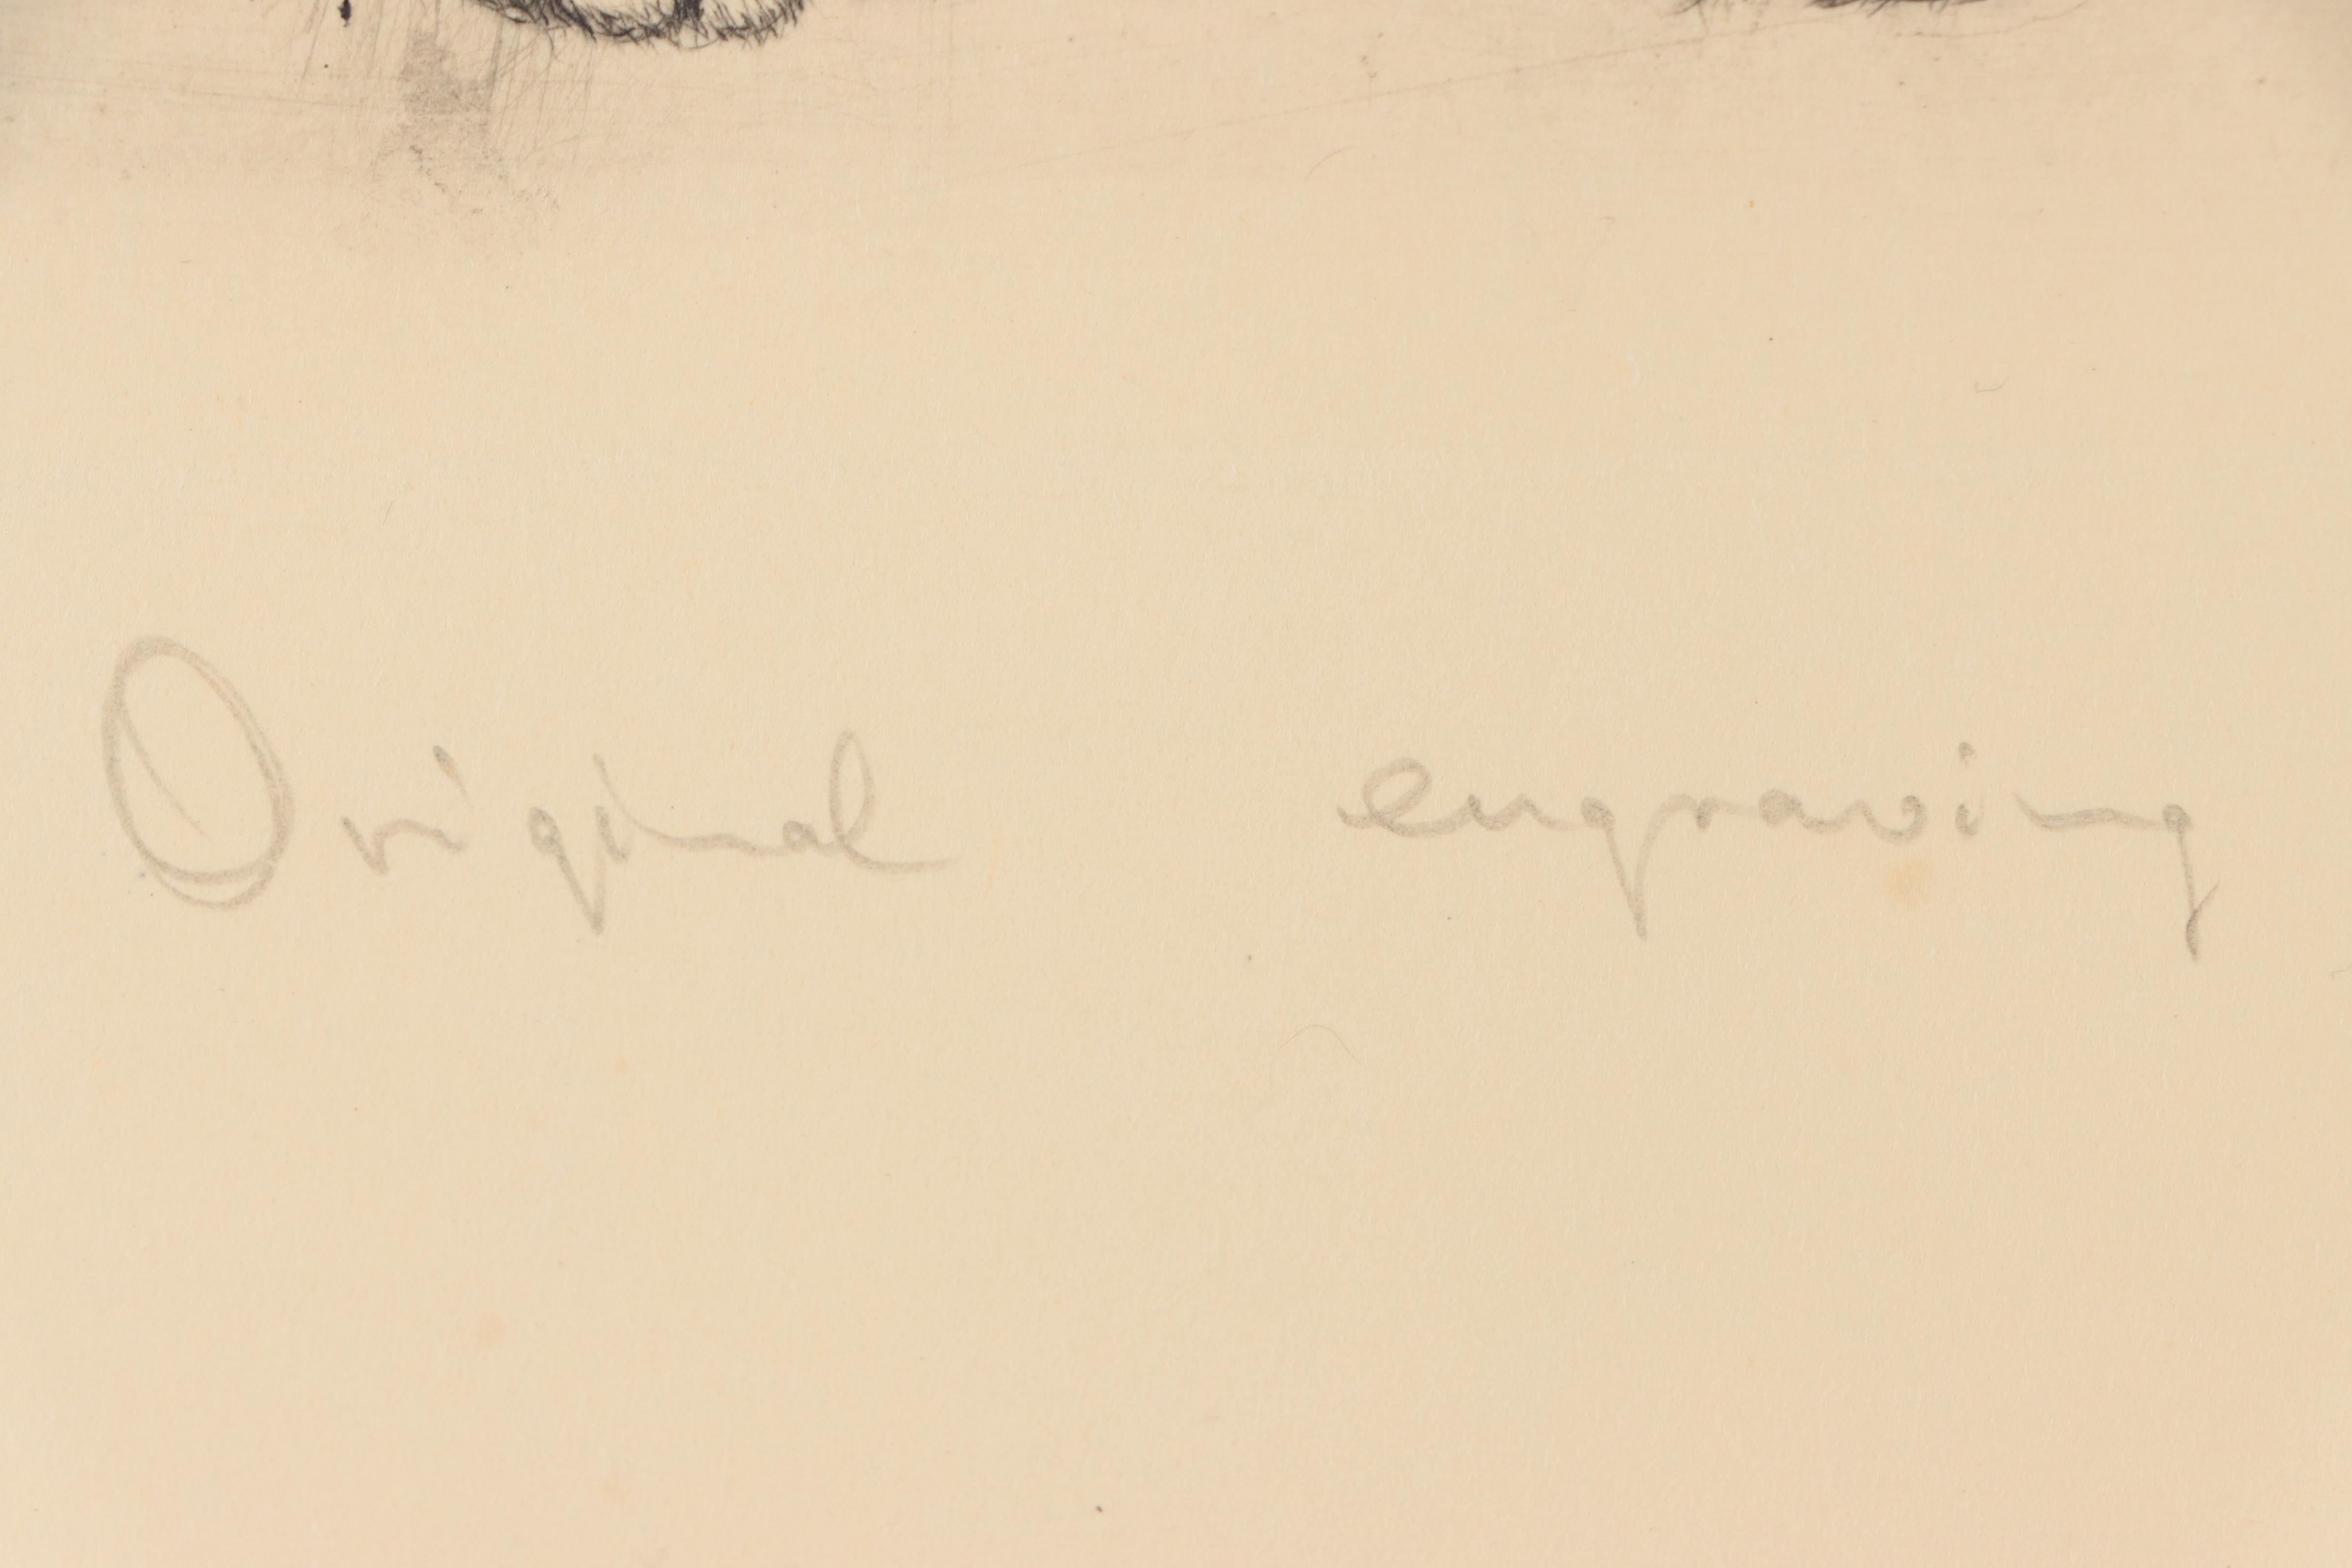 Original engraving